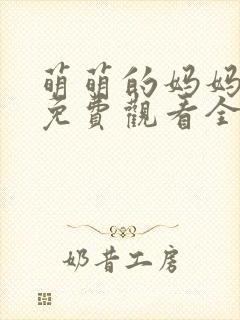 萌萌的妈妈
免費觀看全
奶昔工房